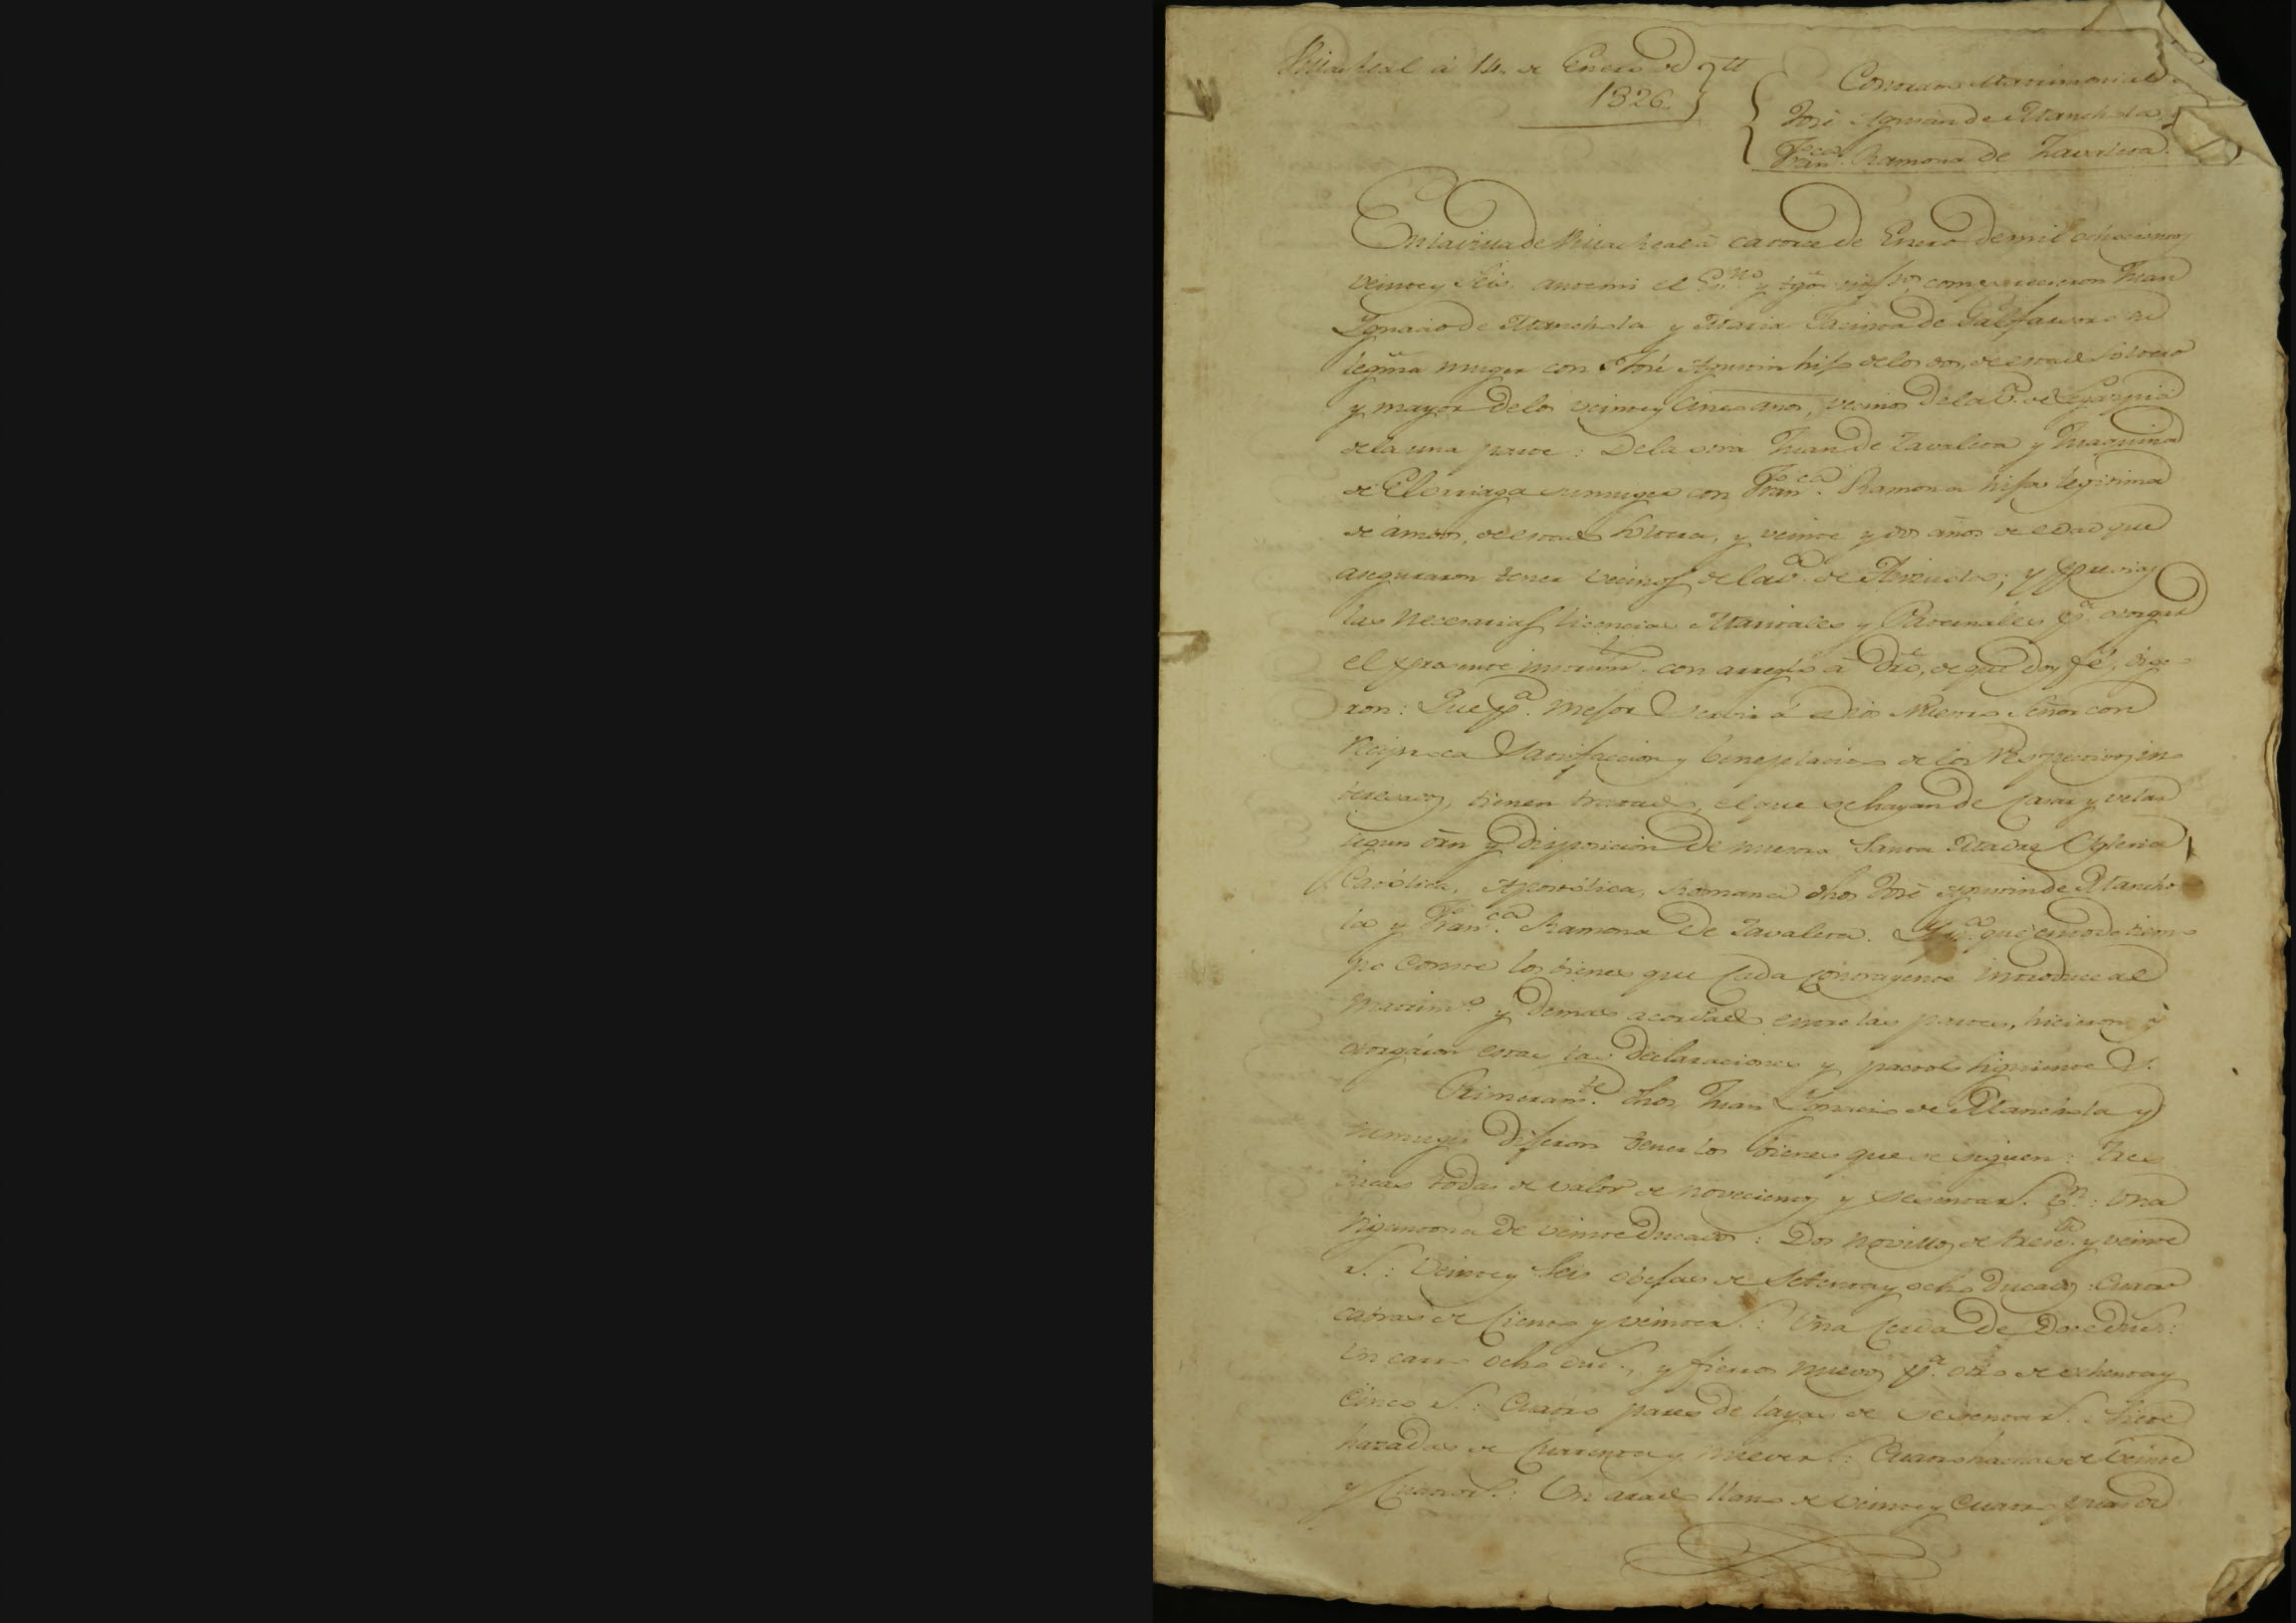 Villa Real à 14. de Enero de
1826.
Contrato Matrimonial
José Agustin de Mancholа, y
Fran.ca Ramona de Zavaleta.
En la villa de Villa Real à catorce de Enero de mil ochocientos
veinte y seis, ante mi el Es.no y tgos. comparecieron Juan
Ygnacio de Manchola y Maria Jacinta de Galfarsoro su
legma. muger con José Agustin hijo de los dos, de estado soltero
y mayor de los veinte y cinco años, vecinos de la V.a de Legazpia
de la una parte: De la otra Juan de Zavaleta y Juaquina
de Elorriaga su muger con Fran.ca Ramona hija legitima
de ámbos, de estado soltera, y veinte y dos años de edad que
aseguraron tener vecinos de la v.a de ; y previas
las necesarias licencias Maritales y Paternales p.a otorgar
el presente instrum.to con arreglo à dro., de que doy fé, dige-
ron: Que p.a mejor servir á Dios Nuestro Señor con
reciproca satisfaccion y beneplacito de los respectivos in-
teresados, tienen tratado, el que se hayan de casar y velar
segun orn y disposicion de nuestra Santa Madre Yglesia
Católica, Apostólica, Romana dhos José Agustin de Mancho-
la y Fran.ca Ramona de Zavaleta. Y p.a que en todo tiem-
po conste los bienes que cada contrayente introduce al
matrim.o y demas acordado entre las partes, hicieron y
otorgáron estas las declaraciones y pactos siguientes.
Primeram.te dhos Juan Ygnacio de Manchola y
su muger dijeron tener los bienes que se siguen: Tres
bacas todas de valor de novecientos y sesenta r.s v.n: Una
de veinte ducados: Dos novillos de trecientos y veinte
r.s: Veinte y seis obejas de setenta y ocho ducados: Cuatro
cabras de ciento y veinte r.s: Una cerda de doce duc.s:
Un carro ocho duc.s, y fierros nuevos p.a otro de ochenta y
cinco r.s: Cuatro pares de layas de sesenta r.s: Siete
hazadas de cuarenta y nueve r.s: Cuatro hachas de veinte
y cuatro r.s: Un arado llano de veinte y cuatro puas de